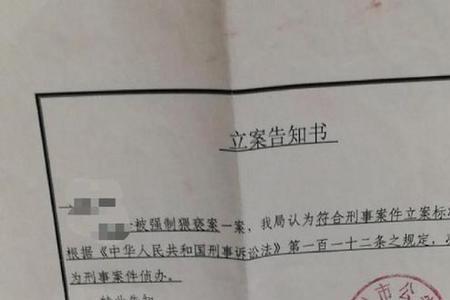 立案告知书
被强制猥亵案一案，我局认为符合刑事案件立案标
根据《中华人民共和国刑事诉讼法》第一百一十二条之规定，
为刑事案件侦办。
特此告知
市公